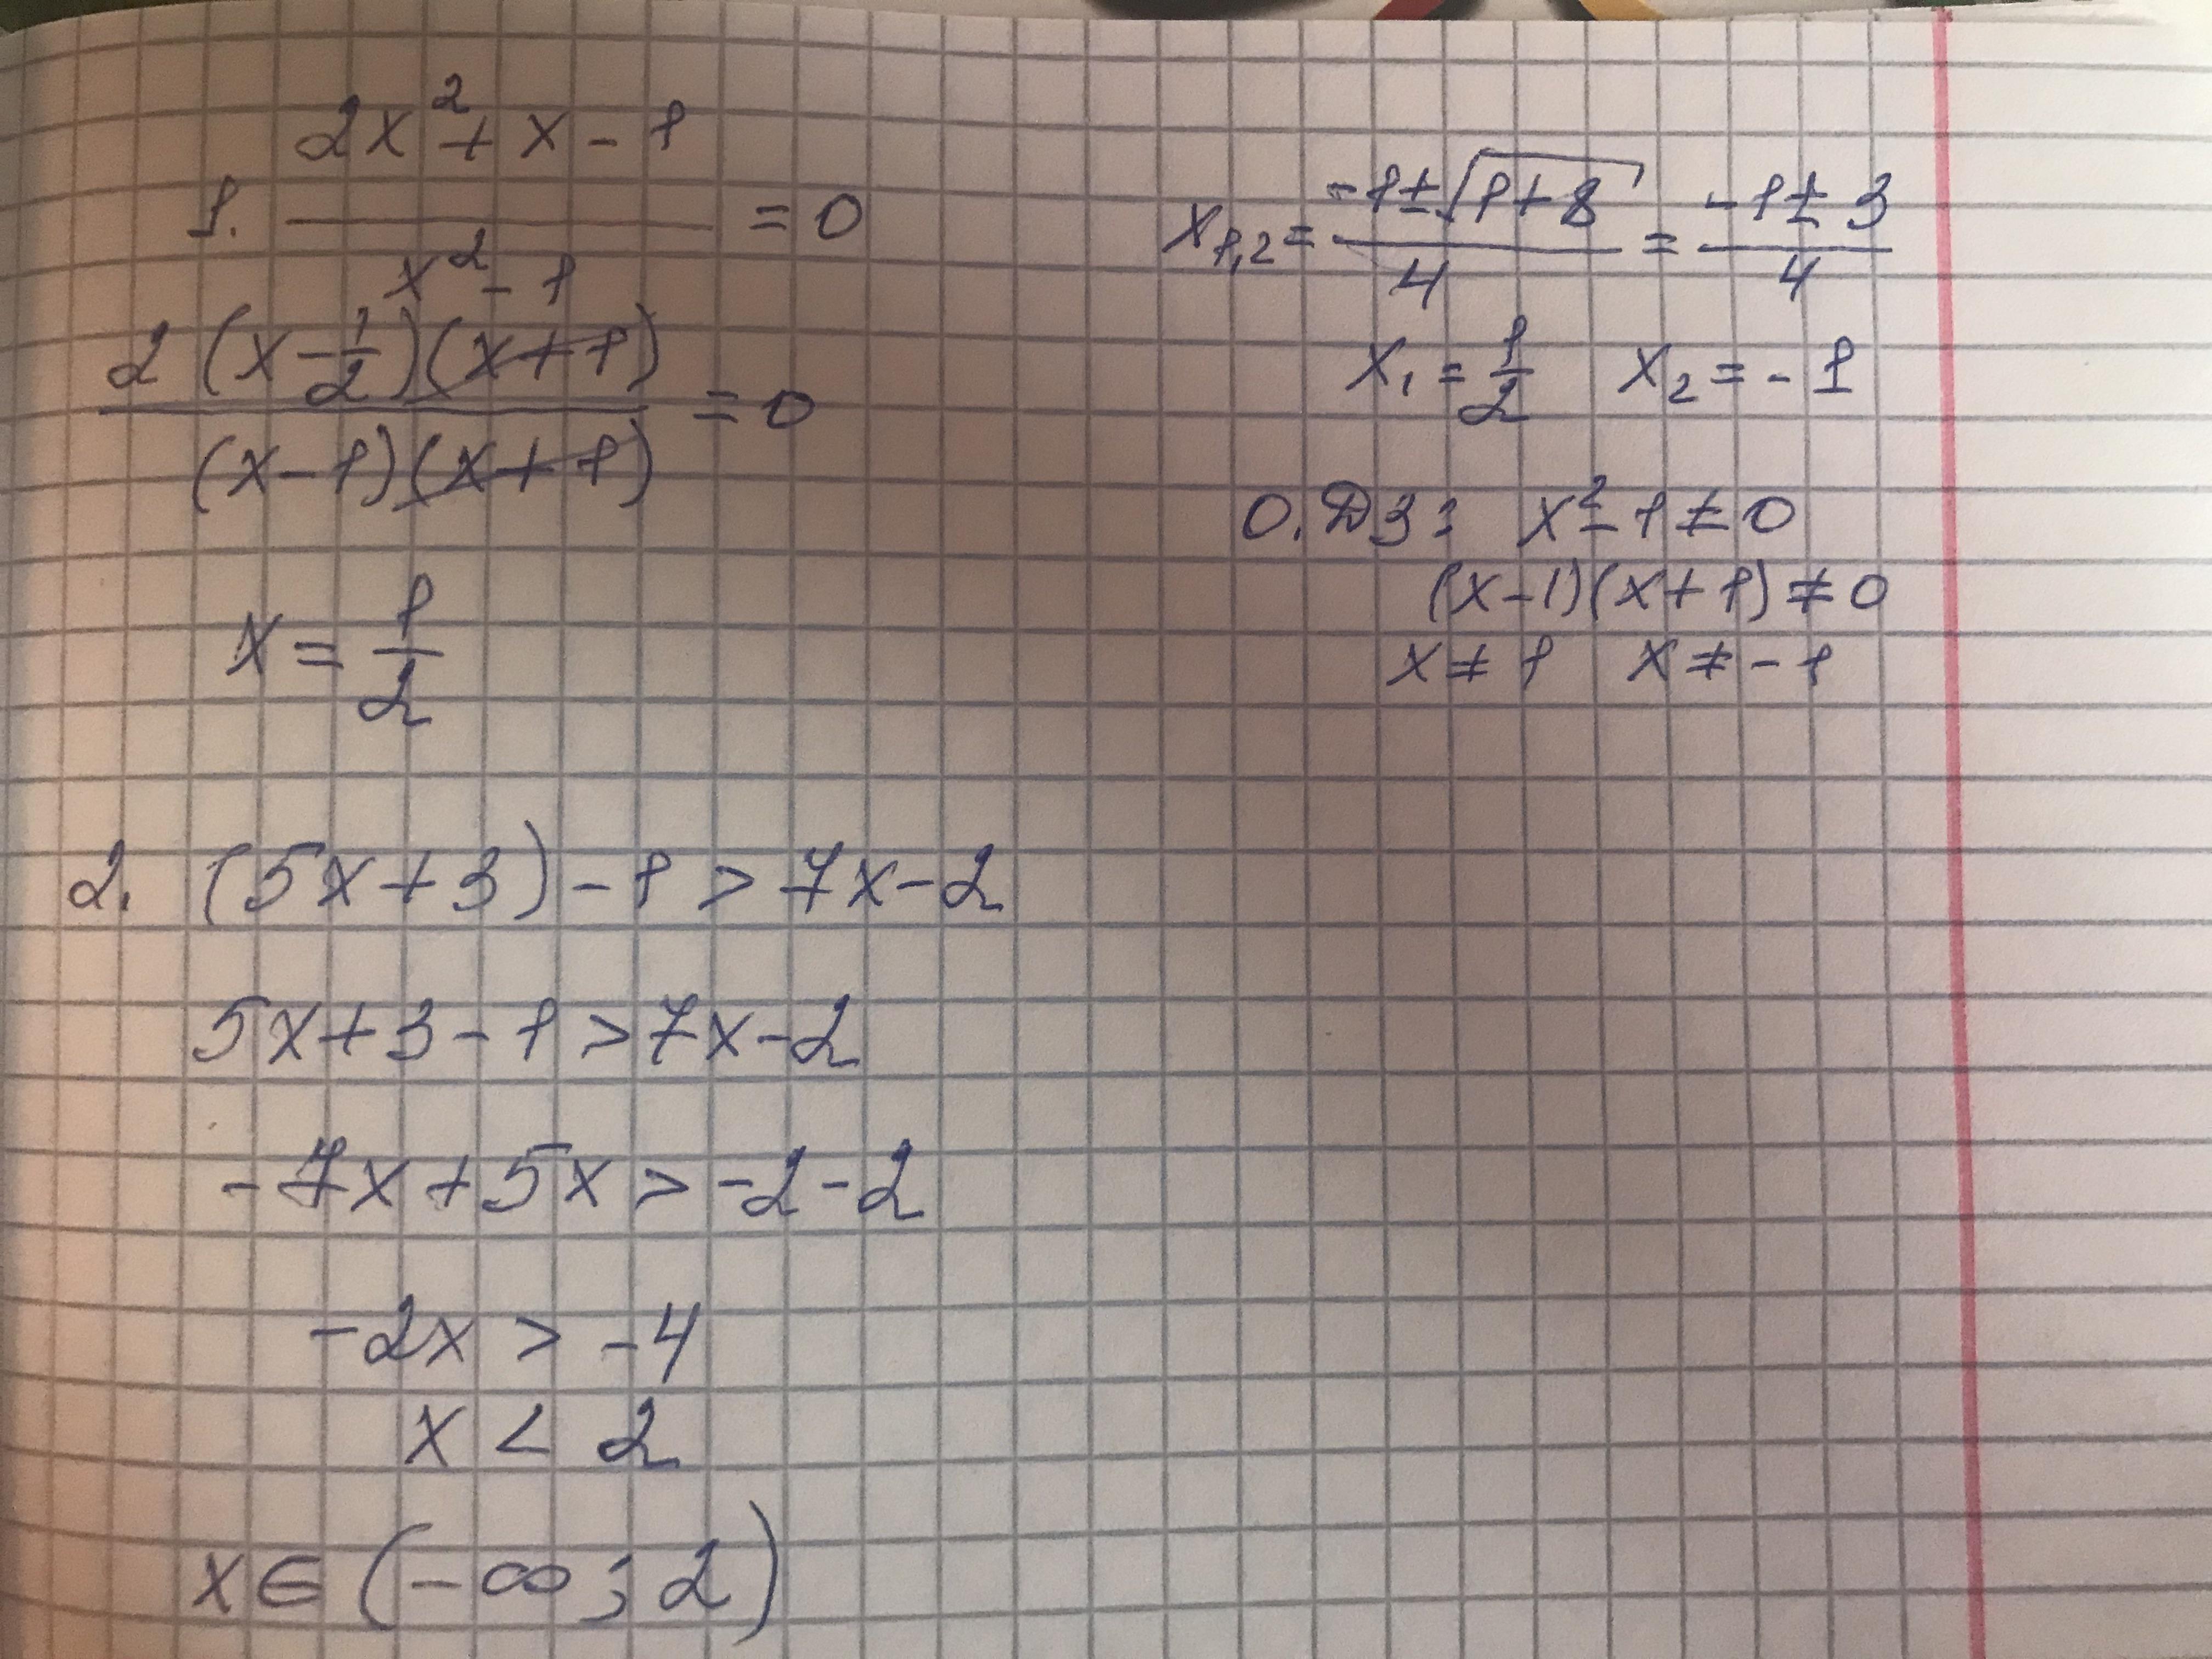 1. (2x² + x - 1)/(x² - 1) = 0
(2(x - 1/2)(x+1))/((x-1)(x+1)) = 0
x = 1/2
x₁,₂ = (-1±√(1+8))/4 = (-1±3)/4
x₁ = 1/2 x₂ = -1
О.ДЗ: x² - 1 ≠ 0
(x-1)(x+1) ≠ 0
x ≠ 1 x ≠ -1
2. (5x+3) - 1 > 7x - 2
5x+3-1 > 7x-2
-7x+5x > -2-2
-2x > -4
x < 2
x ∈ (-∞; 2)